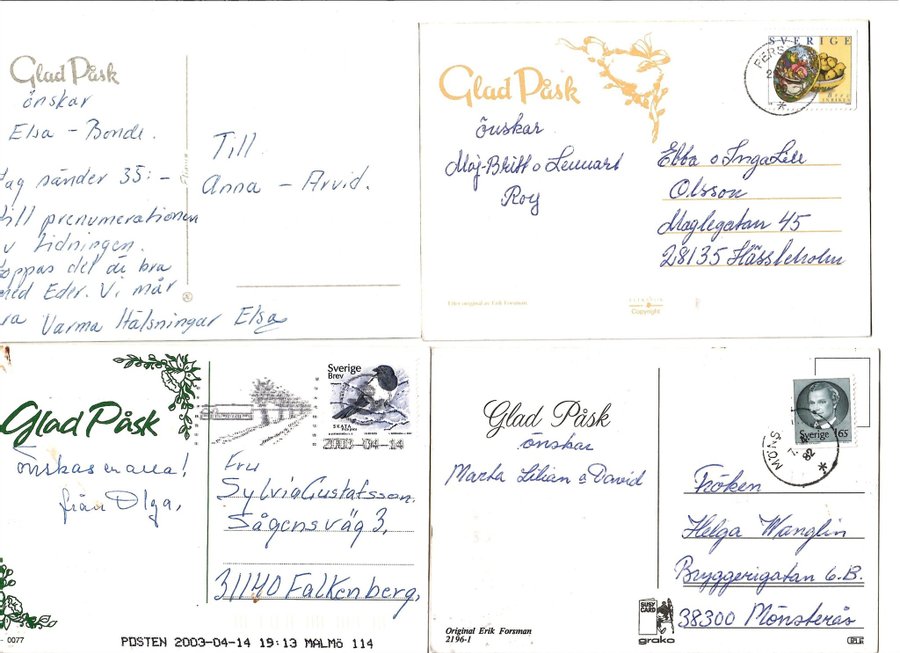 Glad Påsk
önskar
Elsa - Bonde.
Jag sänder 35:-
till prenumerationen
av tidningen.
hoppas det är bra
med Eder. Vi mår
bra Varma Hälsningar Elsa
Till
Anna - Arvid.
Glad Påsk
önskar
Maj-Britt o Lennart
Roy
SVERIGE
BREV
INRIKES
Ebba o IngaLill
Olsson
Maglegatan 45
28135 Hässleholm
Efter original av Erik Forsman
Copyright
Glad Påsk
Önskas en alla!
från Olga,
0077
Sverige
Brev
2003-04-14
Fru
Sylvia Gustafsson.
Sågensväg 3,
31140 Falkenberg,
POSTEN 2003-04-14 19:13 MALMÖ 114
Glad Påsk
önskar
Marta Lilian o David
Original Erik Forsman
2196-1
Sverige 165
MÖNS
82
Fröken
Helga Wanglin
Bryggerigatan 6.B.
38300 Mönsterås
SUSY
CARD
grako